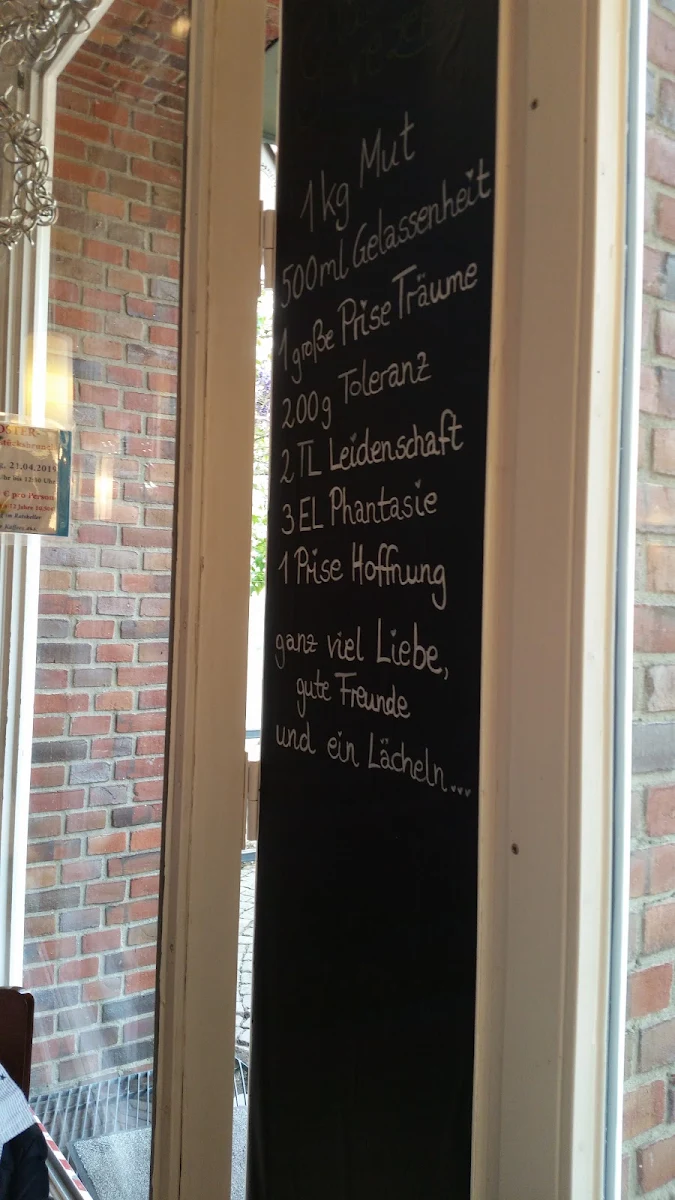 1 kg Mut
500ml Gelassenheit
1 große Prise Träume
200g Toleranz
2 TL Leidenschaft
3 EL Phantasie
1 Prise Hoffnung
ganz viel Liebe,
gute Freunde
und ein Lächeln...
OSTER-
21.04.2019
Uhr bis 12:30 Uhr
€ pro Person